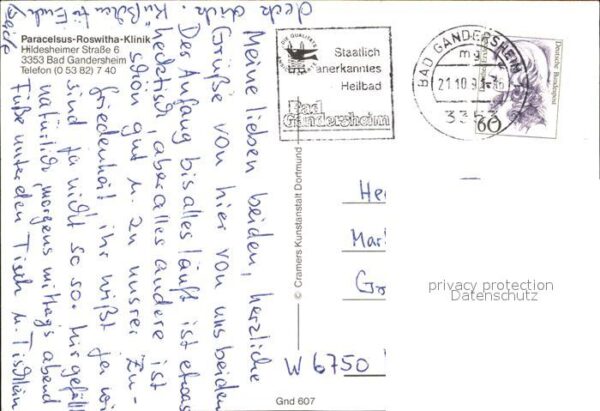 Paracelsus-Roswitha-Klinik
Hildesheimer Straße 6
3353 Bad Gandersheim
Telefon (0 53 82) 7 40
Meine lieben beiden, herzliche
Grüße von hier von uns beiden
Der Anfang bis alles läuft ist etwas
hecktisch, aber alles andere ist
schön gut u. zu unsrer Zu-
friedenheit ihr wißt ja wi
sind ja nicht so so. hir gefäll
natürlich, morgens mittags abend
Füße unter den Tisch u. Tischlein
deck dich
für Euch
beide
© Cramers Kunstanstalt Dortmund
Gnd 607
DIE QUALITÄT
Staatlich
anerkanntes
Heilbad
Bad
Gandersheim
BAD GANDERSHEIM
21.10.9
3353
Deutsche Bundespost
60
He
Mar
Gr
W 6750
privacy protection
Datenschutz